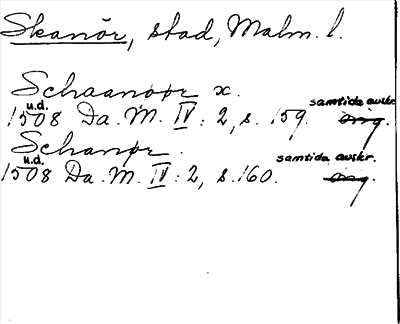 Skanör, stad, Malm. l.
Schaanøpr x.
u.d. samtida avskr.
1508 Da. M. IV: 2, s. 159. orig.
Schanør.
u.d. samtida avskr.
1508 Da. M. IV: 2, s. 160. orig.